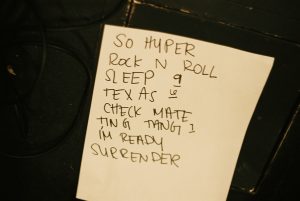 SO HYPER
ROCK N ROLL
SLEEP 9
TEXAS
CHECK MATE
TING TANG
I'M READY
SURRENDER